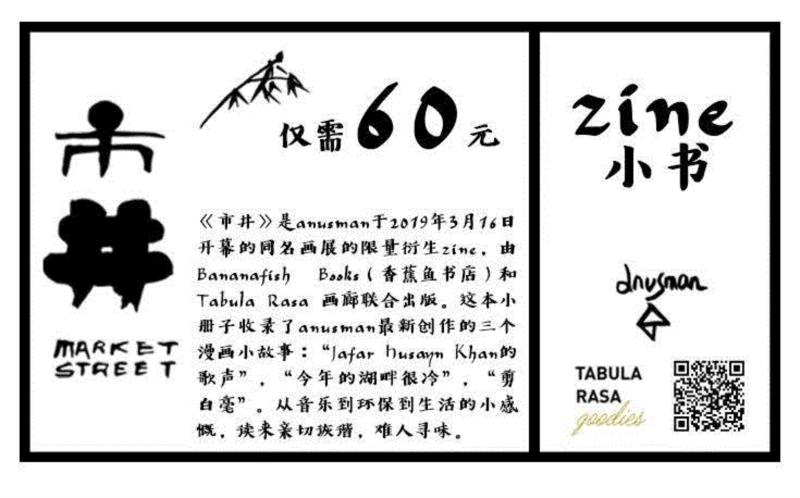 市井
MARKET
STREET
仅需60元
《市井》是anusman于2019年3月16日
开幕的同名画展的限量衍生zine，由
Bananafish Books（香蕉鱼书店）和
Tabula Rasa 画廊联合出版。这本小
册子收录了anusman最新创作的三个
漫画小故事：“Jafar Husayn Khan的
歌声”，“今年的湖畔很冷”，“剪
白毫”。从音乐到环保到生活的小感
慨，读来亲切诙谐，难人寻味。
zine
小书
anusman
TABULA
RASA
goodies